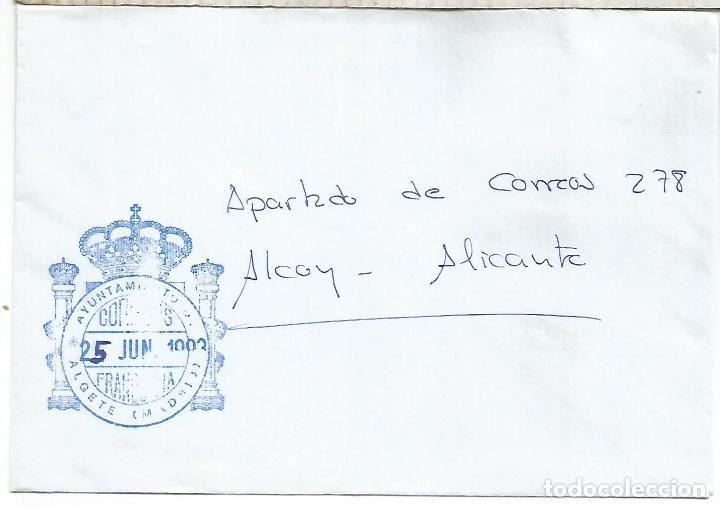 Apartado de Correos 278
Alcoy - Alicante
AYUNTAMIENTO DE
CORREOS
25 JUN. 1993
FRANQUICIA
ALGETE (MADRID)
todocoleccion